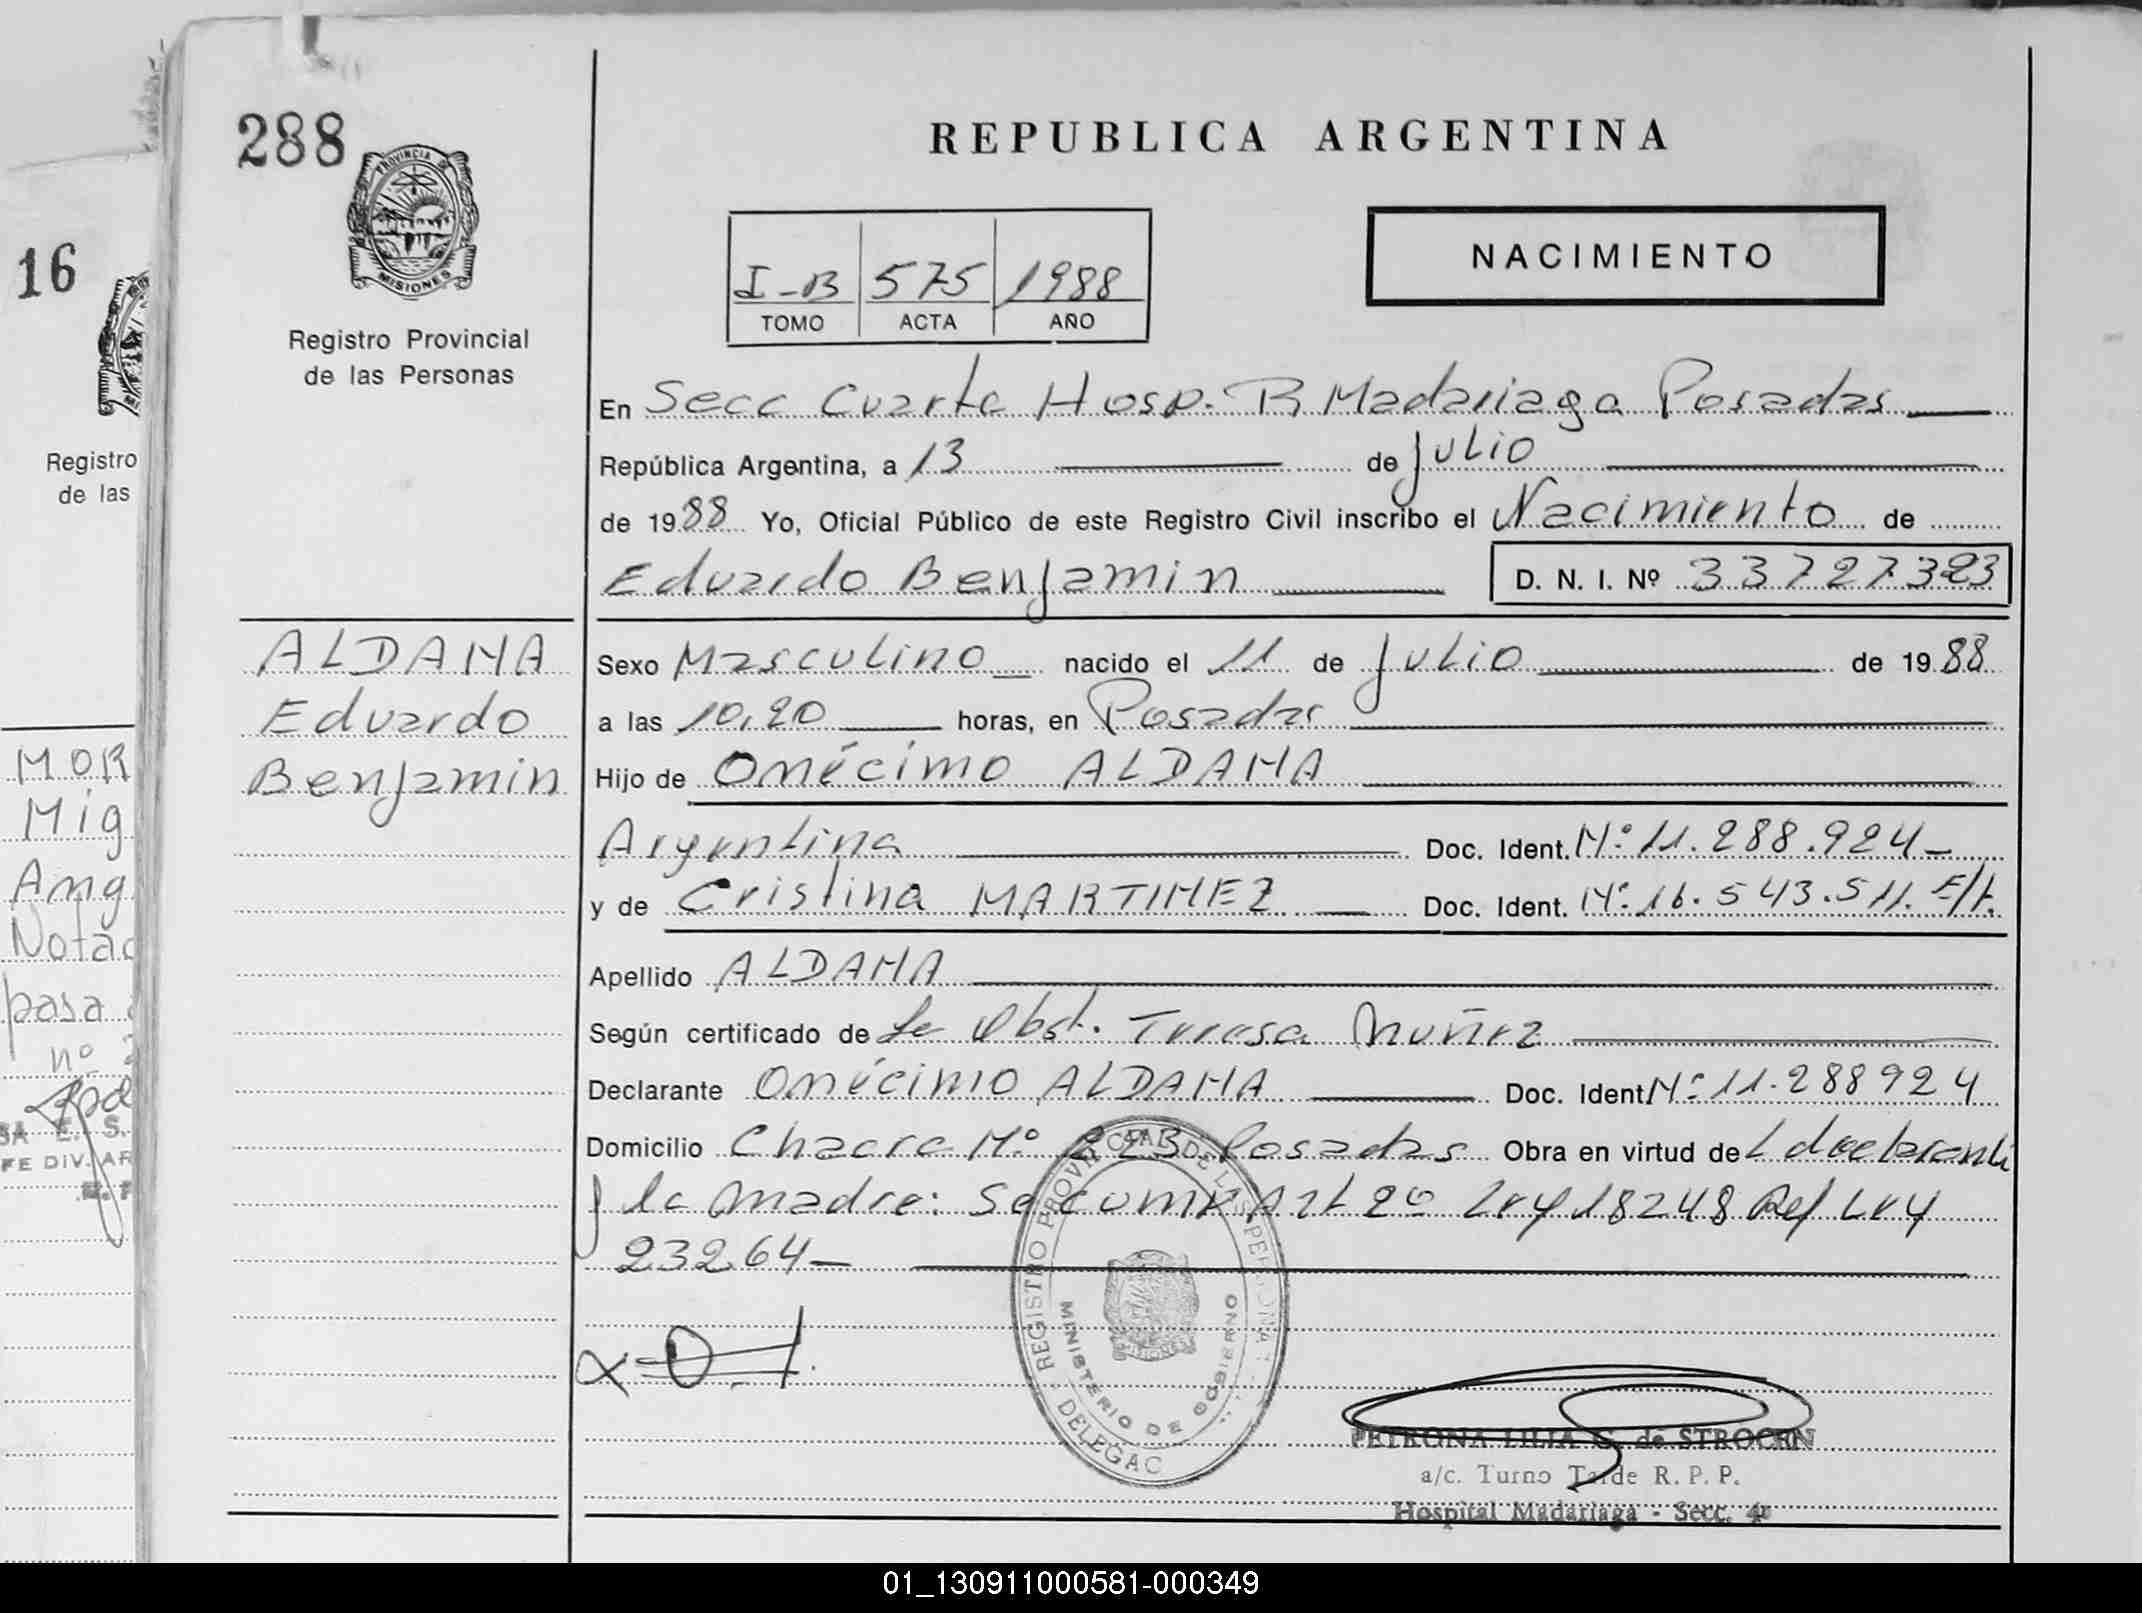 288
PROVINCIA DE
MISIONES
Registro Provincial
de las Personas
REPUBLICA ARGENTINA
I-B 575 1988
TOMO ACTA AÑO
NACIMIENTO
En Secc Cuarta Hosp. R Madariaga Posadas
República Argentina, a 13 de Julio
de 1988 Yo, Oficial Público de este Registro Civil inscribo el Nacimiento de
Eduardo Benjamin D. N. I. Nº 33727323
ALDANA
Eduardo
Benjamin
Sexo Masculino nacido el 11 de Julio de 1988
a las 10,20 horas, en Posadas
Hijo de Onécimo ALDANA
Argentina Doc. Ident. Nº 11.288.924-
y de Cristina MARTINEZ Doc. Ident. Nº 16.543.511. F/t.
Apellido ALDANA
Según certificado de la Obst. Teresa Nuñez
Declarante Onécimo ALDANA Doc. Ident Nº 11.288924
Domicilio Chacra Nº 223 Posadas Obra en virtud de L declaranti
y la madre: Se comp Art 2º Ley 18248 Ref Ley
23264-
REGISTRO PROVINCIAL DE LAS PERSONAS
MINISTERIO DE GOBIERNO
MISIONES
DELEGAC
PETRONA LILIA G. de STROCEN
a/c. Turno Tarde R. P. P.
Hospital Madariaga - Secc. 4ª
16
Registro
de las
MOR
Mig
Ang
Notac
pasa
nº
SA E. S.
FE DIV. AR
01_130911000581-000349